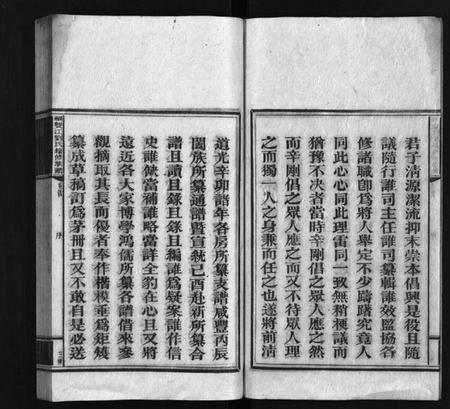 君子清源潔流抑末崇本倡興是役且隨
議隨行誰司主任誰司纂輯誰效監協各
修諸職卽爲將人舉定不少躊躇究竟人
同此心心同此理雷同一致無稍梗議而
猶豫不决者當時辛剛倡之眾人應之然
而辛剛倡之眾人應之而又不待眾人理
之而獨一人之身兼而任之也遂將前淸
道光辛卯譜年各房所纂支譜咸豐丙辰
闔族所纂通譜暨宣統己酉赴新所纂合
譜且讀且錄且錄且編誰爲疑案誰作信
史誰俶當補誰略當詳全豹在心且又將
遠近各大家博學鴻儒所纂各譜借來參
觀摘取其長而優者奉作楷模垂爲矩矱
纂成草稿訂爲茅冊且又不敢自是必送
江劉氏續修族譜
序